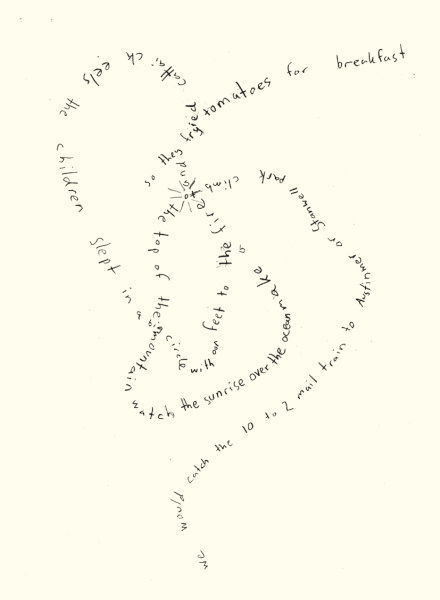 we would catch the 10 to 2 mail train to Austinmer or Stanwell Park climb to the top of the mountain watch the sunrise over the ocean make a fire
the children slept in a circle with our feet to the
so they fryied tomatoes for breakfast
eels